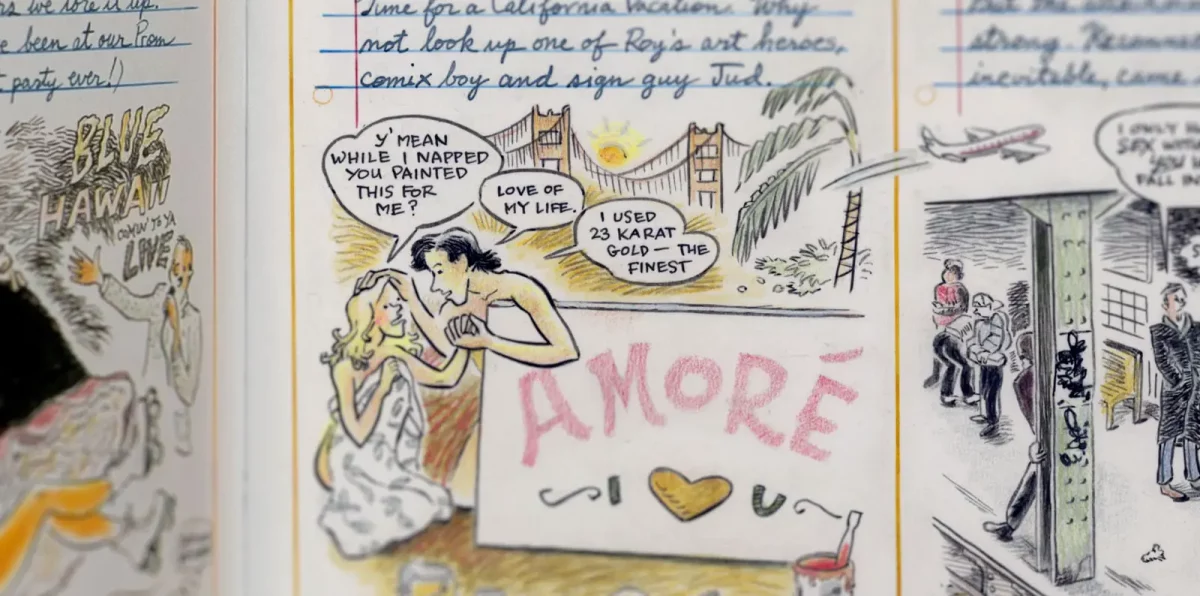 we tore it up.
been at our Prom
party ever!)
BLUE
HAWAII
COMIN' TO YA
LIVE
Time for a California Vacation. Why
not look up one of Roy's art heroes,
comix boy and sign guy Jud.
Y' MEAN
WHILE I NAPPED
YOU PAINTED
THIS FOR
ME?
LOVE OF
MY LIFE.
I USED
23 KARAT
GOLD — THE
FINEST
AMORÉ
I U
strong.
inevitable, came
I ONLY
SEX
YOU
FALL IN